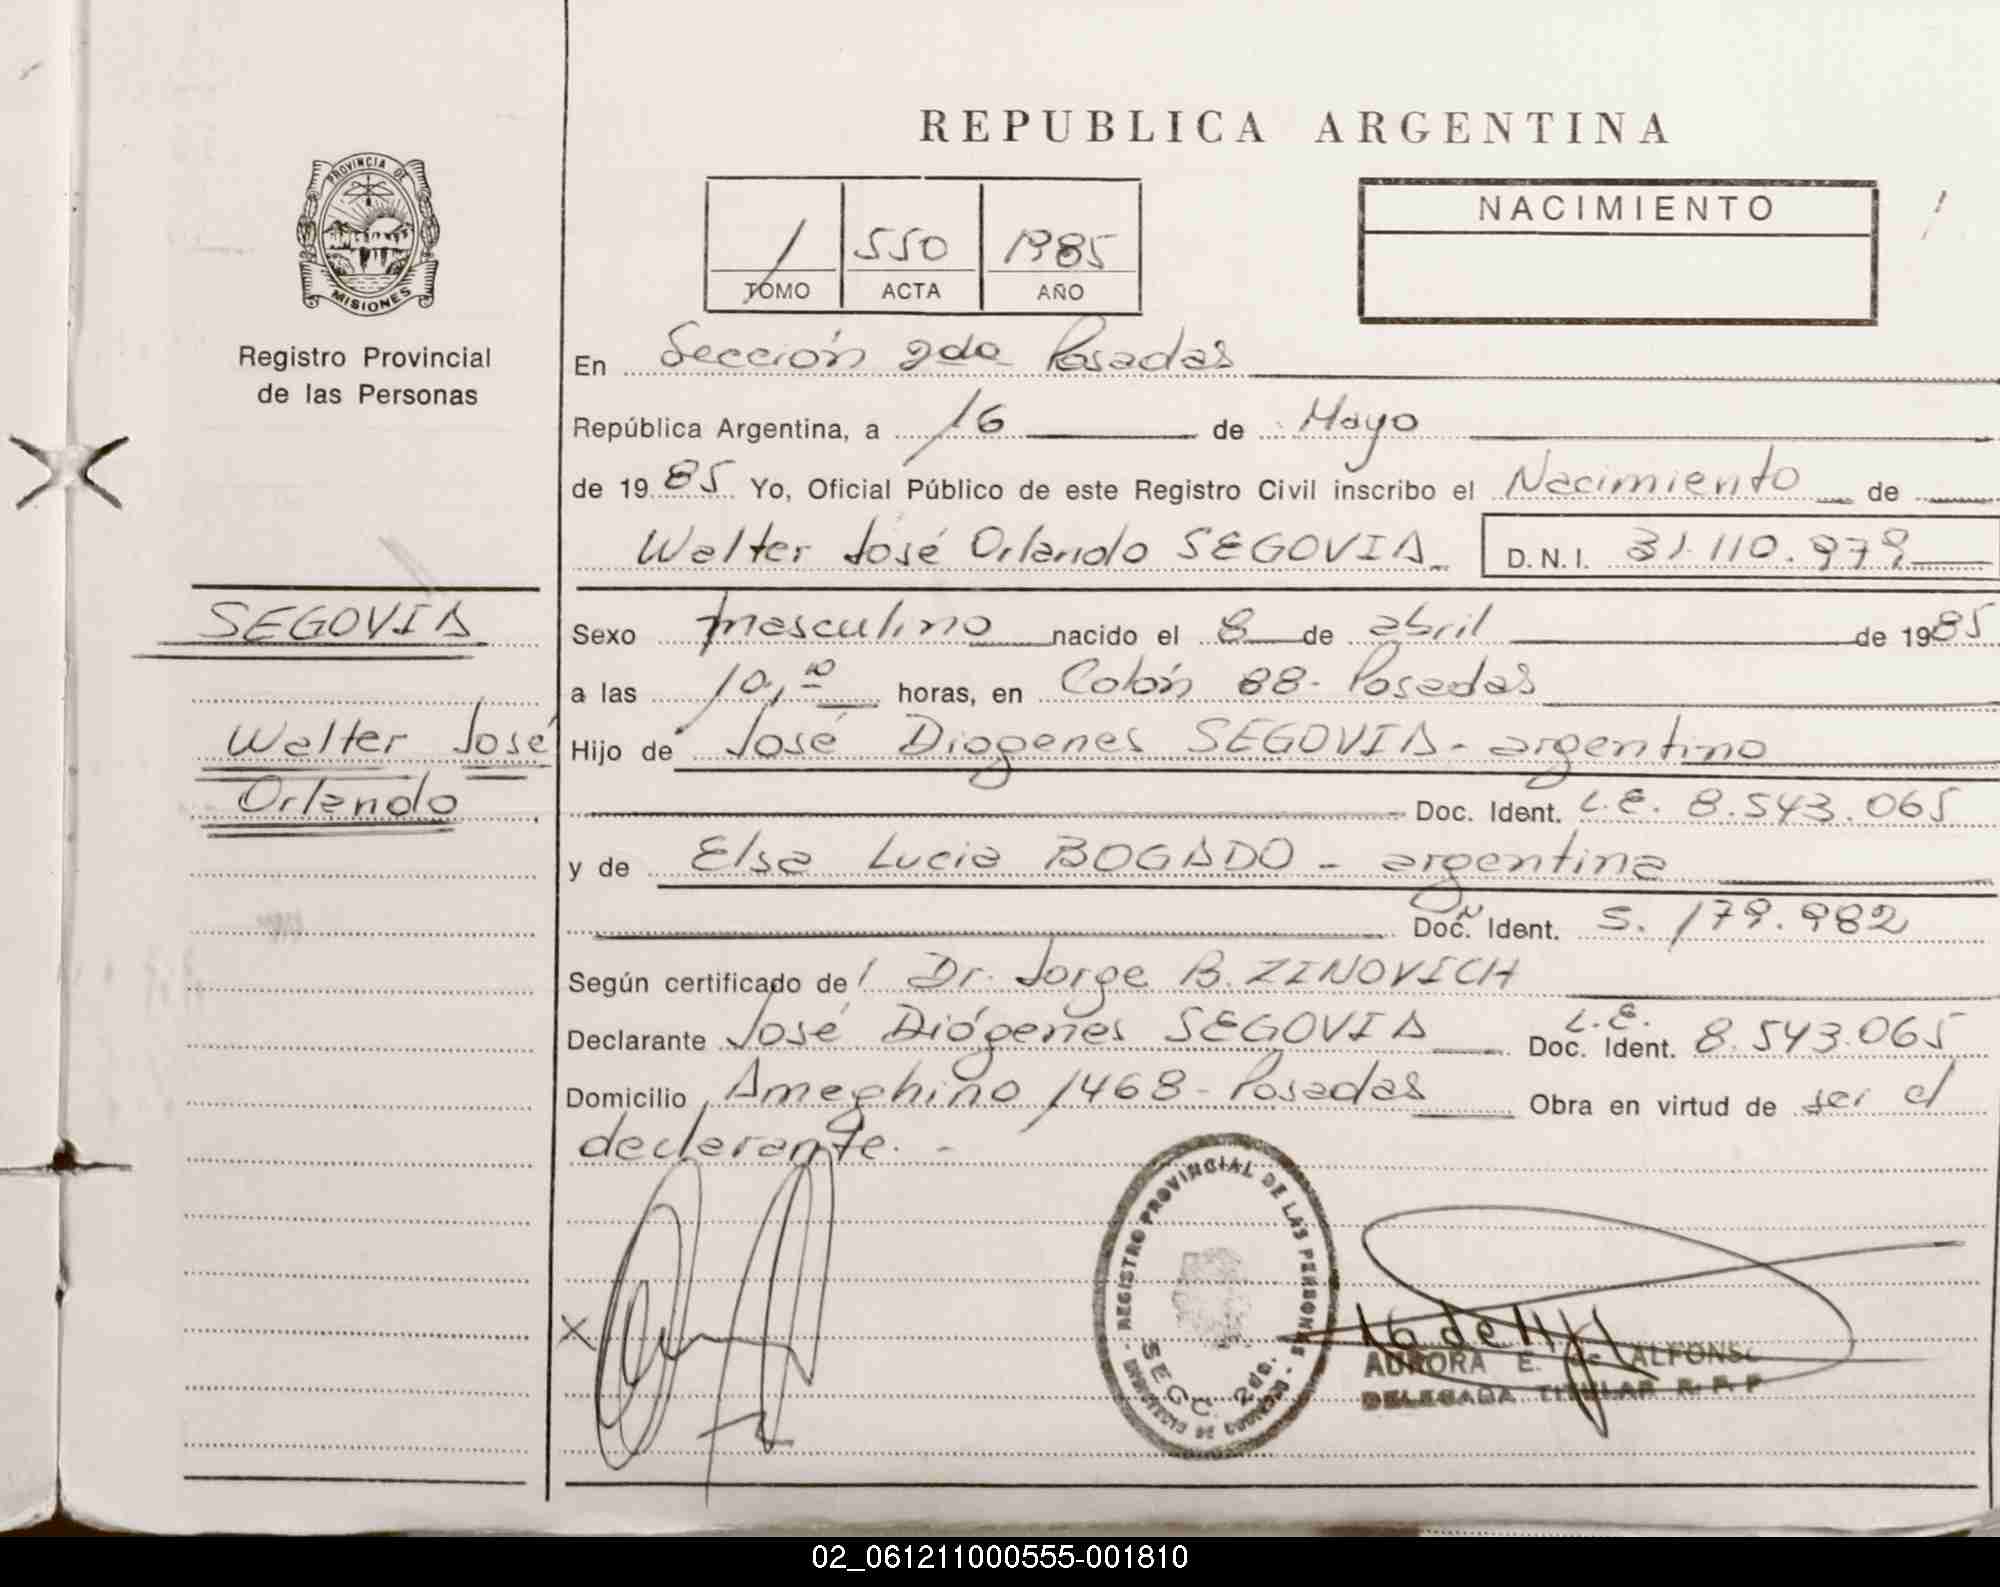 REPUBLICA ARGENTINA
PROVINCIA DE
MISIONES
Registro Provincial
de las Personas
1 550 1985
TOMO ACTA AÑO
NACIMIENTO
En Sección 2da Posadas
República Argentina, a 16 de Mayo
de 1985 Yo, Oficial Público de este Registro Civil inscribo el Nacimiento de
Walter José Orlando SEGOVIA D.N.I. 31.110.979
SEGOVIA
Walter José
Orlando
Sexo masculino nacido el 8 de abril de 1985
a las 10,10 horas, en Colón 88 - Posadas
Hijo de José Diogenes SEGOVIA - argentino
Doc. Ident. L.E. 8.543.065
y de Elsa Lucia BOGADO - argentina
Doc. Ident. 5.179.982
Según certificado de l Dr. Jorge B. ZINOVICH
Declarante José Diógenes SEGOVIA Doc. Ident. L.E. 8.543.065
Domicilio Ameghino 1468 - Posadas Obra en virtud de ser el
declarante. -
REGISTRO PROVINCIAL DE LAS PERSONAS
SECC. 2da.
X
AURORA E. de ALFONSO
DELEGADA TITULAR R. P. P
02_061211000555-001810